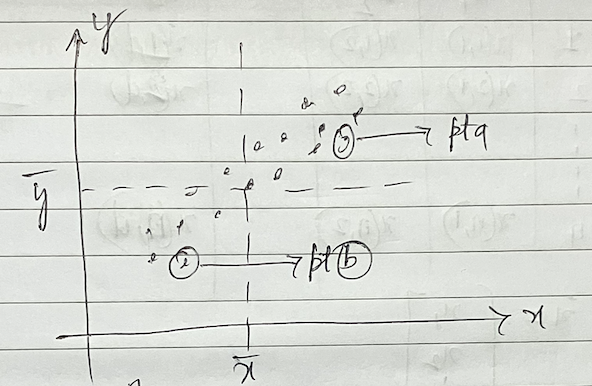 y
pt a
ȳ
pt b
x
x̄